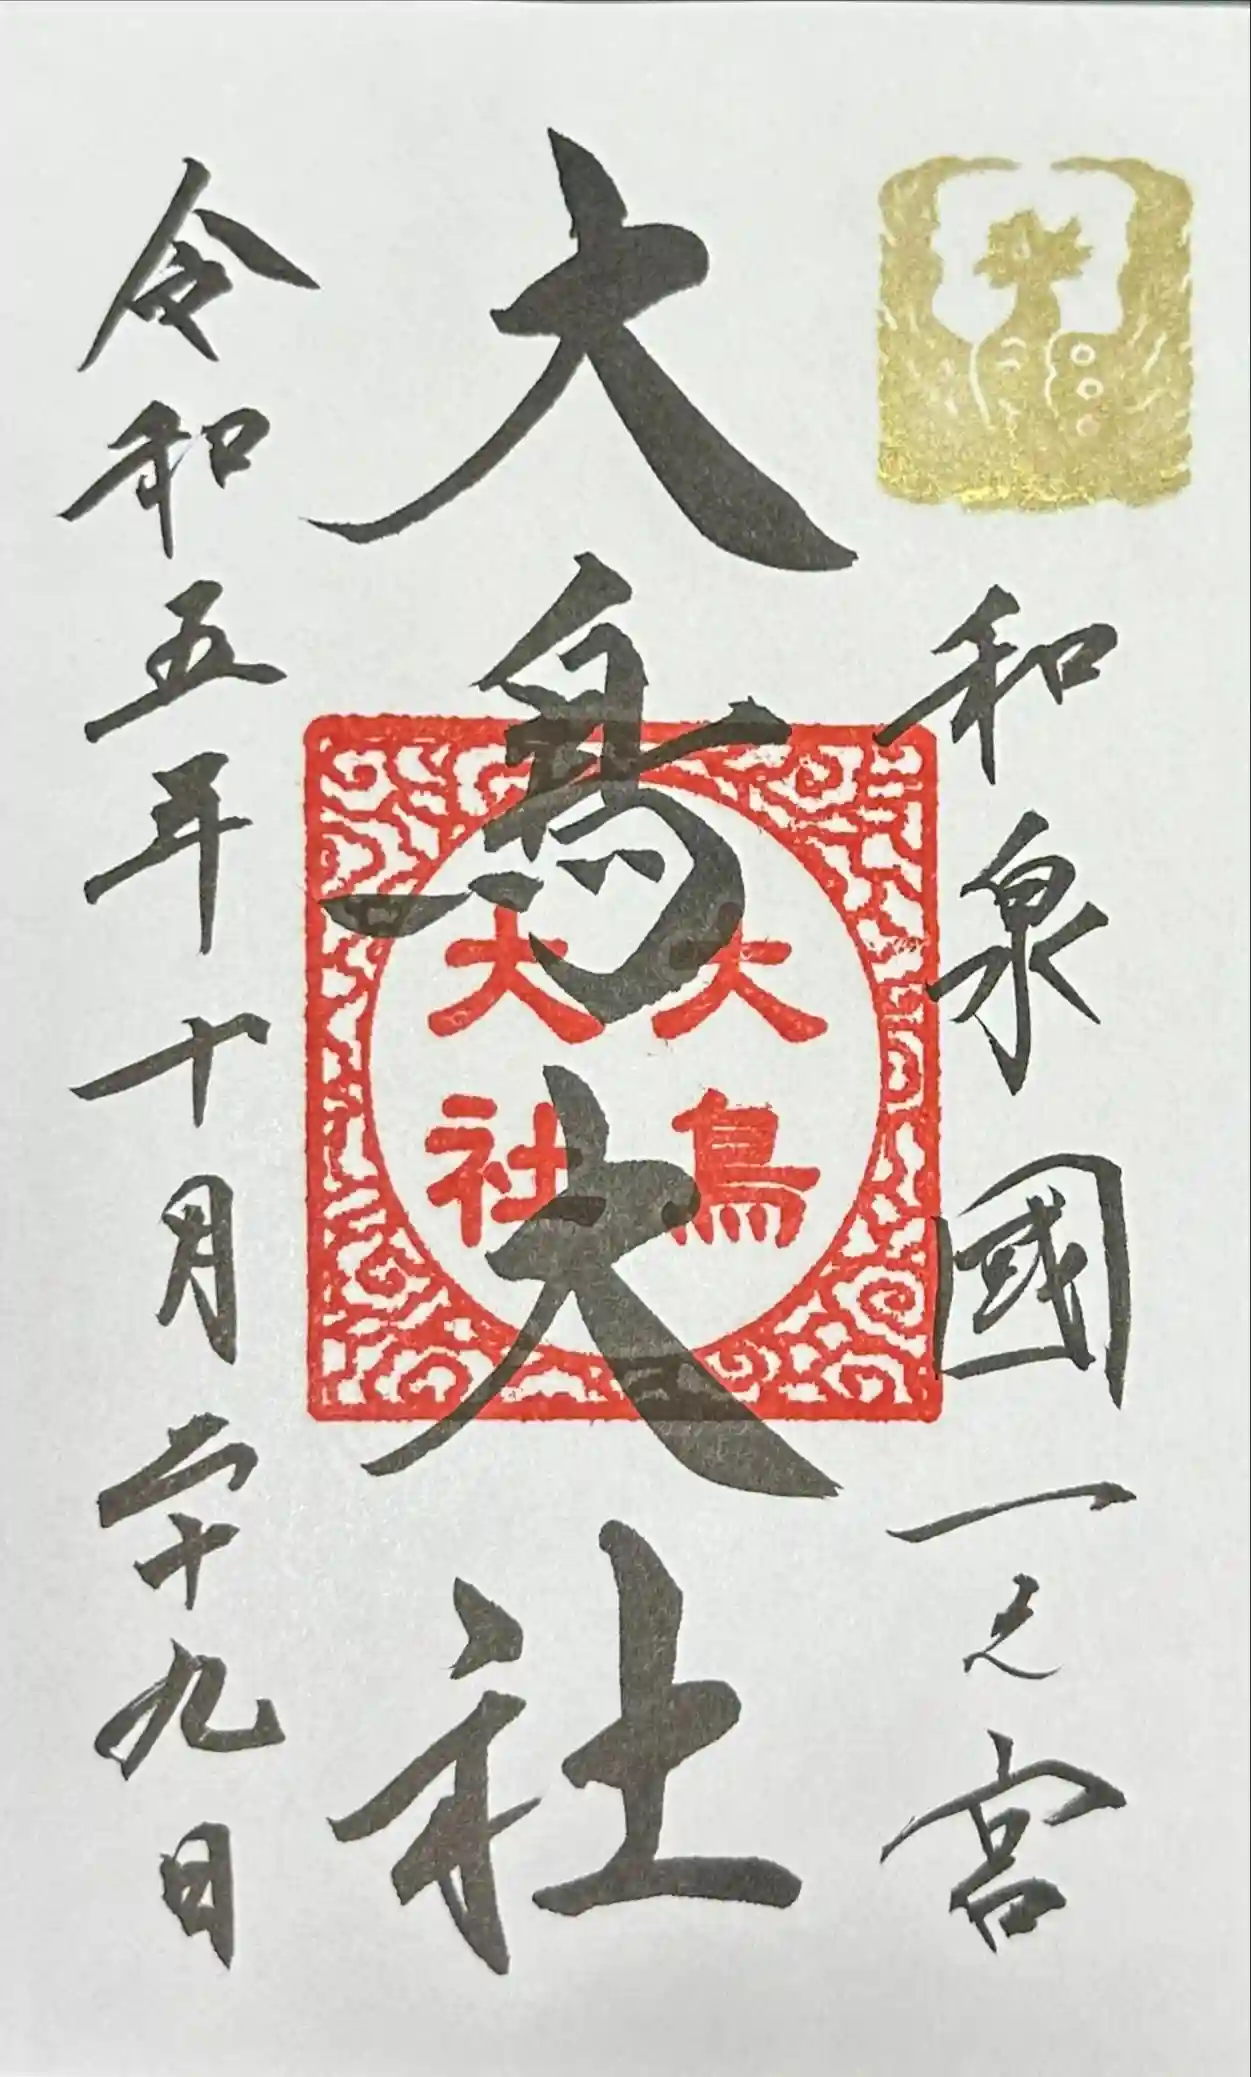 和泉國一之宮
大鳥大社
大鳥
大社
令和五年十月二十九日